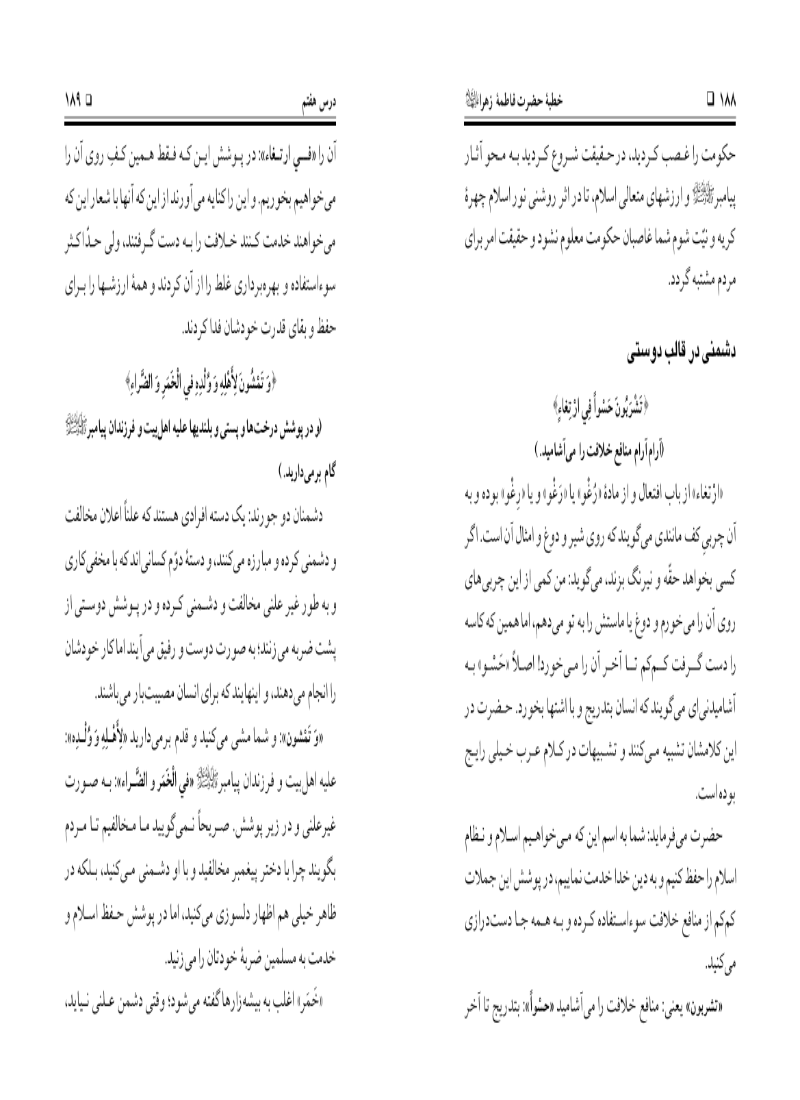 ۱۸۸ ❑ خطبهٔ حضرت فاطمهٔ زهرا
حکومت را غصب کردید، در حقیقت شروع کردید به محو آثار
پیامبرﷺ و ارزشهای متعالی اسلام، تا در اثر روشنی نور اسلام چهرهٔ
کریه و نیّت شوم شما غاصبان حکومت معلوم نشود و حقیقت امر برای
مردم مشتبه گردد.
دشمنی در قالب دوستی
﴿تَشْرَبُونَ حَسْواً فِي ارْتِغاءٍ﴾
(آرام آرام منافع خلافت را می‌آشامید.)
«ارْتغاء» از باب افتعال و از مادهٔ «رُغْو» یا «رَغْو» و یا «رِغْو» بوده و به
آن چربیِ کف مانندی می‌گویند که روی شیر و دوغ و امثال آن است. اگر
کسی بخواهد حقّه و نیرنگ بزند، می‌گوید: من کمی از این چربی‌های
روی آن را می‌خورم و دوغ یا ماستش را به تو می‌دهم، اما همین که کاسه
را دست گرفت کم‌کم تا آخر آن را می‌خورد! اصلاً «حَسْو» به
آشامیدنی‌ای می‌گویند که انسان بتدریج و با اشتها بخورد. حضرت در
این کلامشان تشبیه می‌کنند و تشبیهات در کلام عرب خیلی رایج
بوده است.
حضرت می‌فرماید: شما به اسم این که می‌خواهیم اسلام و نظام
اسلام را حفظ کنیم و به دین خدا خدمت نماییم، در پوشش این جملات
کم‌کم از منافع خلافت سوءاستفاده کرده و به همه جا دست‌درازی
می‌کنید.
«تشربون» یعنی: منافع خلافت را می‌آشامید «حسْواً»: بتدریج تا آخر
درس هفتم ❑ ۱۸۹
آن را «فـي ارتـغاء»: در پوشش این که فقط همین کفِ روی آن را
می‌خواهیم بخوریم. و این را کنایه می‌آورند از این که آنها با شعار این که
می‌خواهند خدمت کنند خلافت را به دست گرفتند، ولی حدّاکثر
سوءاستفاده و بهره‌برداری غلط را از آن کردند و همهٔ ارزشها را برای
حفظ و بقای قدرت خودشان فدا کردند.
﴿وَ تَمْشُونَ لِأَهْلِهِ وَ وُلْدِهِ فِي الْخَمَرِ وَ الضَّراءِ﴾
(و در پوشش درخت‌ها و پستی و بلندیها علیه اهل‌بیت و فرزندان پیامبرﷺ
گام برمی‌دارید.)
دشمنان دو جورند: یک دسته افرادی هستند که علناً اعلان مخالفت
و دشمنی کرده و مبارزه می‌کنند، و دستهٔ دوّم کسانی‌اند که با مخفی‌کاری
و به طور غیر علنی مخالفت و دشمنی کرده و در پوشش دوستی از
پشت ضربه می‌زنند؛ به صورت دوست و رفیق می‌آیند اما کار خودشان
را انجام می‌دهند، و اینهایند که برای انسان مصیبت‌بار می‌باشند.
«وَ تَمْشون»: و شما مشی می‌کنید و قدم برمی‌دارید «لِأَهْلِهِ وَ وُلْدِه»:
علیه اهل‌بیت و فرزندان پیامبرﷺ «في الْخَمَر و الضَّراء»: به صورت
غیرعلنی و در زیر پوشش. صریحاً نمی‌گویید ما مخالفیم تا مردم
بگویند چرا با دختر پیغمبر مخالفید و با او دشمنی می‌کنید، بلکه در
ظاهر خیلی هم اظهار دلسوزی می‌کنید، اما در پوشش حفظ اسلام و
خدمت به مسلمین ضربهٔ خودتان را می‌زنید.
«خَمَر» اغلب به بیشه‌زارها گفته می‌شود؛ وقتی دشمن علنی نیاید،